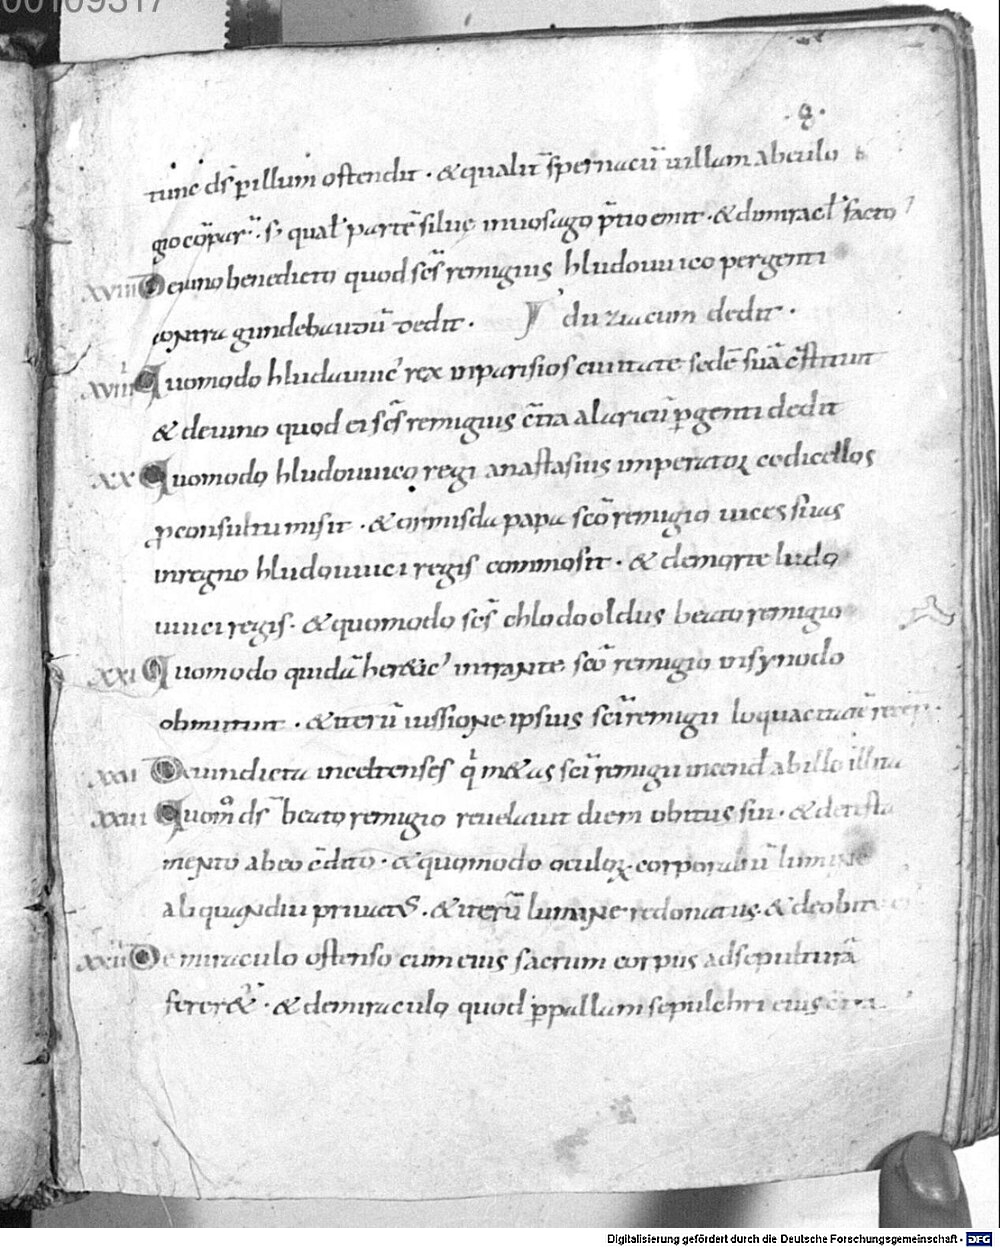 00109317
.8.
tunc ds̄ p̄ illum ostendit · & qualit̄ spernacū uillam ab eulo
gio cōpar̄ · s; qual̄ partē siluę in uosago p̄tio emit · & de mirac̄l̄ facto
XVIII De uino benedicto quod sc̄s remigius hludouuico pergenti
contra gundebaudū dedit · duziacum dedit ·
XVIIII Quomodo hludouuic' rex in parisios ciuitate sedē suā c̄stituit
& de uino quod ei sc̄s remigius c̄tra alaricū p̄genti dedit
XX Quomodo hludouuico regi anastasius imperator codicellos
p̄ consultu misit · & ormisda papa sc̄o remigio uices suas
in regno hludouuici regis commosit · & de morte ludo
uuici regis · & quomodo sc̄s chlodooldus beato remigio
XXI Quomodo quidā heretic' intrante sc̄o remigio in synodo
obmutuit · & iterū iussione ipsius sc̄i remigii loquacitatē recep
XXII De uindicta incolrenses q̄ m&as sc̄i remigii incend abillo illita
XXIII Quom̄ ds̄ beato remigio reuelauit diem obitus sui · & de testa
mento ab eo c̄dito · & quomodo oculor̄ corporaliū lumine
aliquandiu priuat' · & iterū lumine redonatus & de obitu
XXIIII De miraculo ostenso cum eius sacrum corpus ad sepulturā
ferer& · & de miraculo quod p̄ pallam sepulchri eius c̄tra
Digitalisierung gefördert durch die Deutsche Forschungsgemeinschaft - DFG